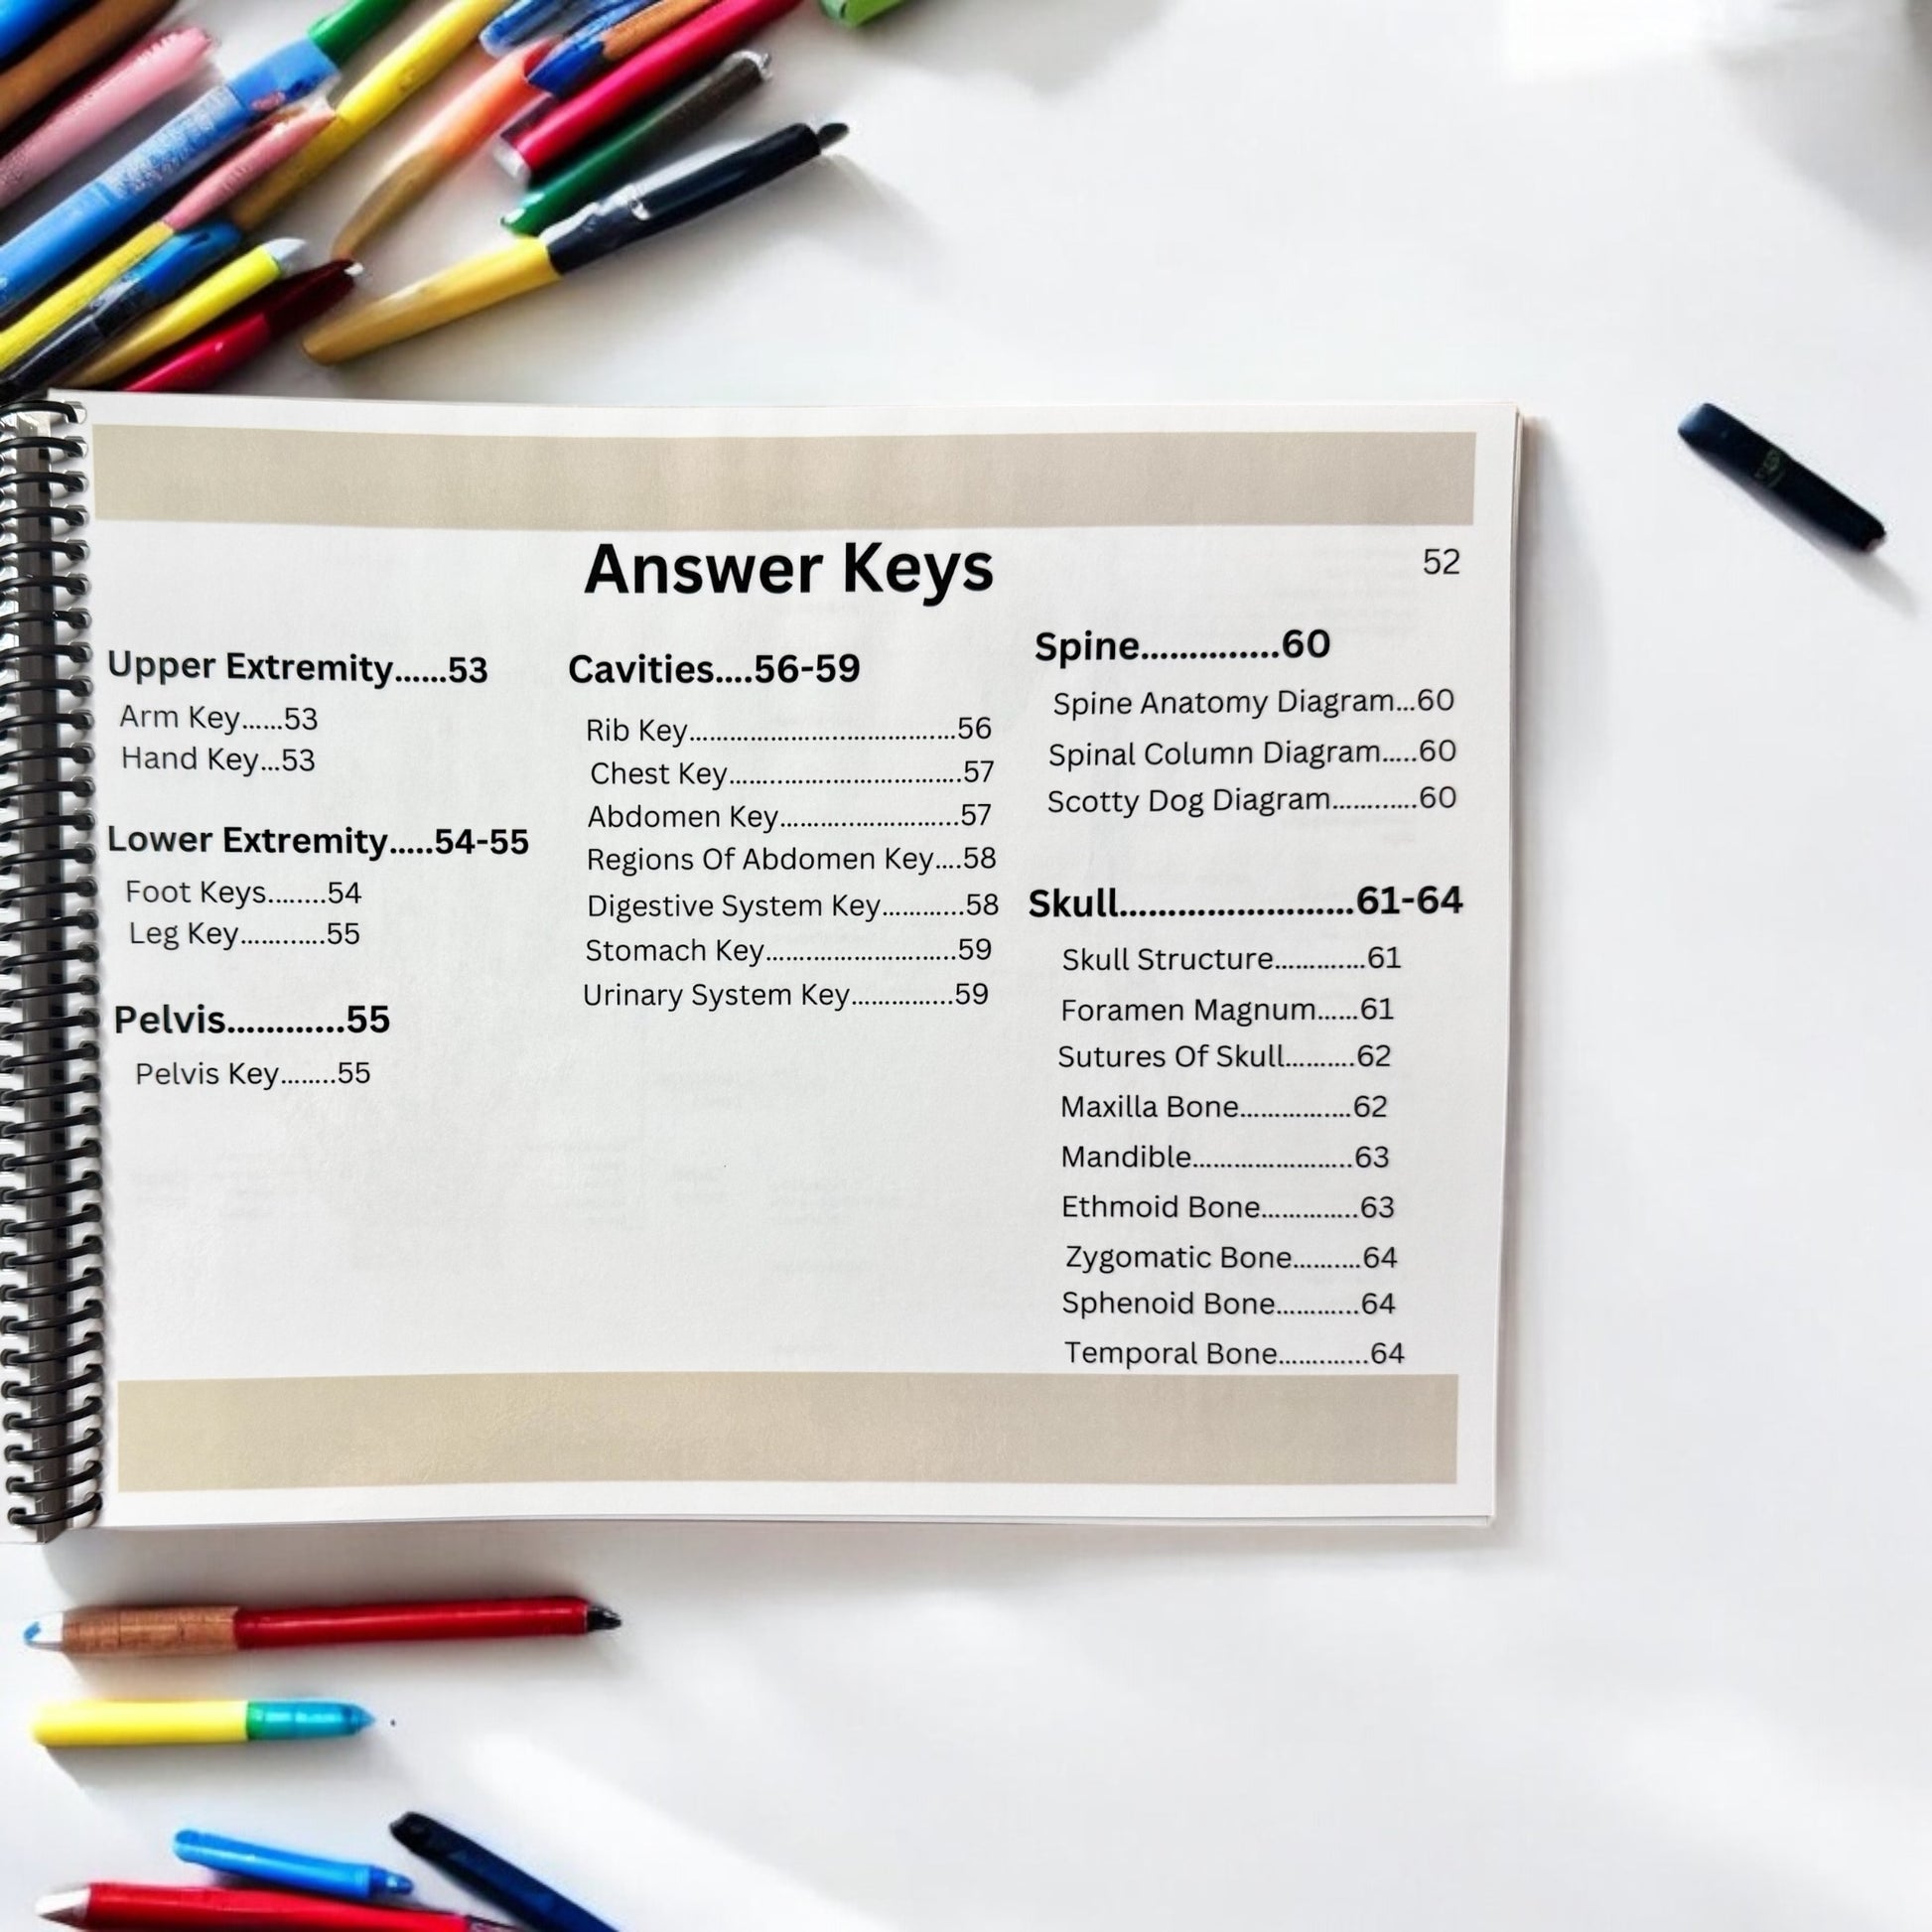 Answer Keys
52
Upper Extremity......53
Arm Key......53
Hand Key...53
Lower Extremity.....54-55
Foot Keys........54
Leg Key...........55
Pelvis............55
Pelvis Key........55
Cavities....56-59
Rib Key................................56
Chest Key............................57
Abdomen Key......................57
Regions Of Abdomen Key....58
Digestive System Key...........58
Stomach Key.......................59
Urinary System Key.............59
Spine..............60
Spine Anatomy Diagram...60
Spinal Column Diagram.....60
Scotty Dog Diagram...........60
Skull........................61-64
Skull Structure............61
Foramen Magnum......61
Sutures Of Skull.........62
Maxilla Bone..............62
Mandible....................63
Ethmoid Bone.............63
Zygomatic Bone.........64
Sphenoid Bone...........64
Temporal Bone............64